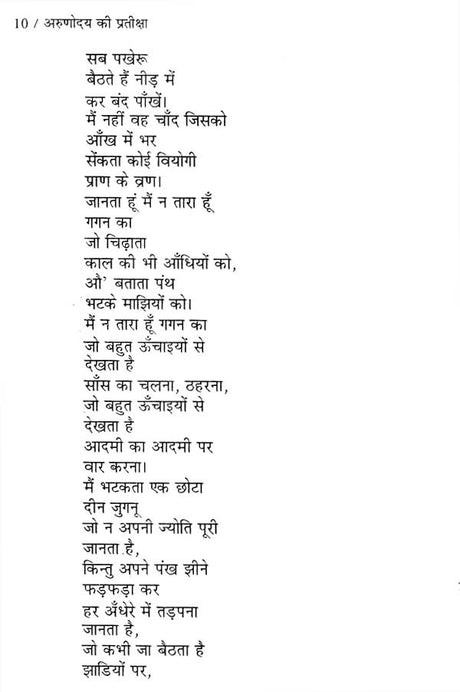 10 / अरुणोदय की प्रतीक्षा
सब पखेरू
बैठते हैं नीड़ में
कर बंद पाँखें।
मैं नहीं वह चाँद जिसको
आँख में भर
सेंकता कोई वियोगी
प्राण के व्रण।
जानता हूं मैं न तारा हूँ
गगन का
जो चिढ़ाता
काल की भी आँधियों को,
औ' बताता पंथ
भटके माझियों को।
मैं न तारा हूँ गगन का
जो बहुत ऊँचाइयों से
देखता है
साँस का चलना, ठहरना,
जो बहुत ऊँचाइयों से
देखता है
आदमी का आदमी पर
वार करना।
मैं भटकता एक छोटा
दीन जुगनू
जो न अपनी ज्योति पूरी
जानता है,
किन्तु अपने पंख झीने
फड़फड़ा कर
हर अँधेरे में तड़पना
जानता है,
जो कभी जा बैठता है
झाडियों पर,